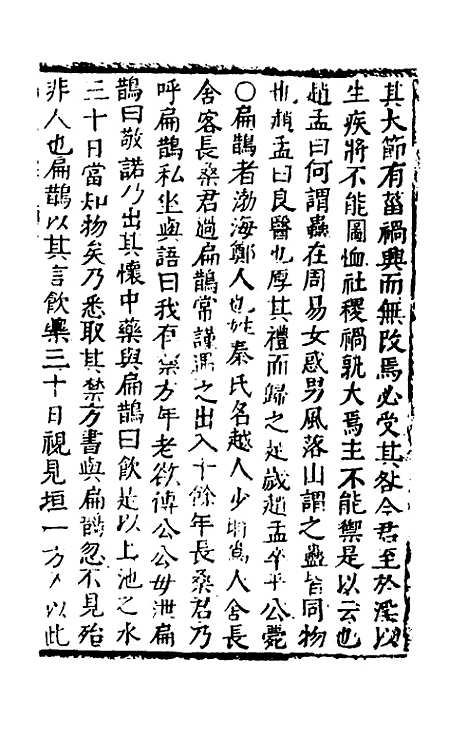 其大節有菑禍興而無改焉必受其咎今君至於淫以
生疾將不能圖恤社稷禍孰大焉主不能禦是以云也
趙孟曰何謂蠱在周易女惑男風落山謂之蠱皆同物
也趙孟曰良醫也厚其禮而歸之是歲趙孟卒平公薨
〇扁鵲者渤海鄭人也姓秦氏名越人少時為人舍長
舍客長桑君過扁鵲常謹遇之出入十餘年長桑君乃
呼扁鵲私坐與語曰我有禁方年老欲傳公公毋泄扁
鵲曰敬諾乃出其懷中藥與扁鵲曰飲是以上池之水
三十日當知物矣乃悉取其禁方書與扁鵲忽不見殆
非人也扁鵲以其言飲藥三十日視見垣一方人以此